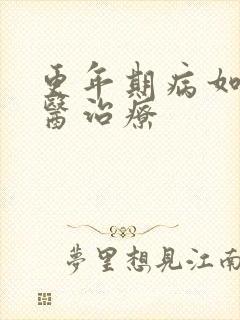 更年期病如
醫治療
夢里想見江南